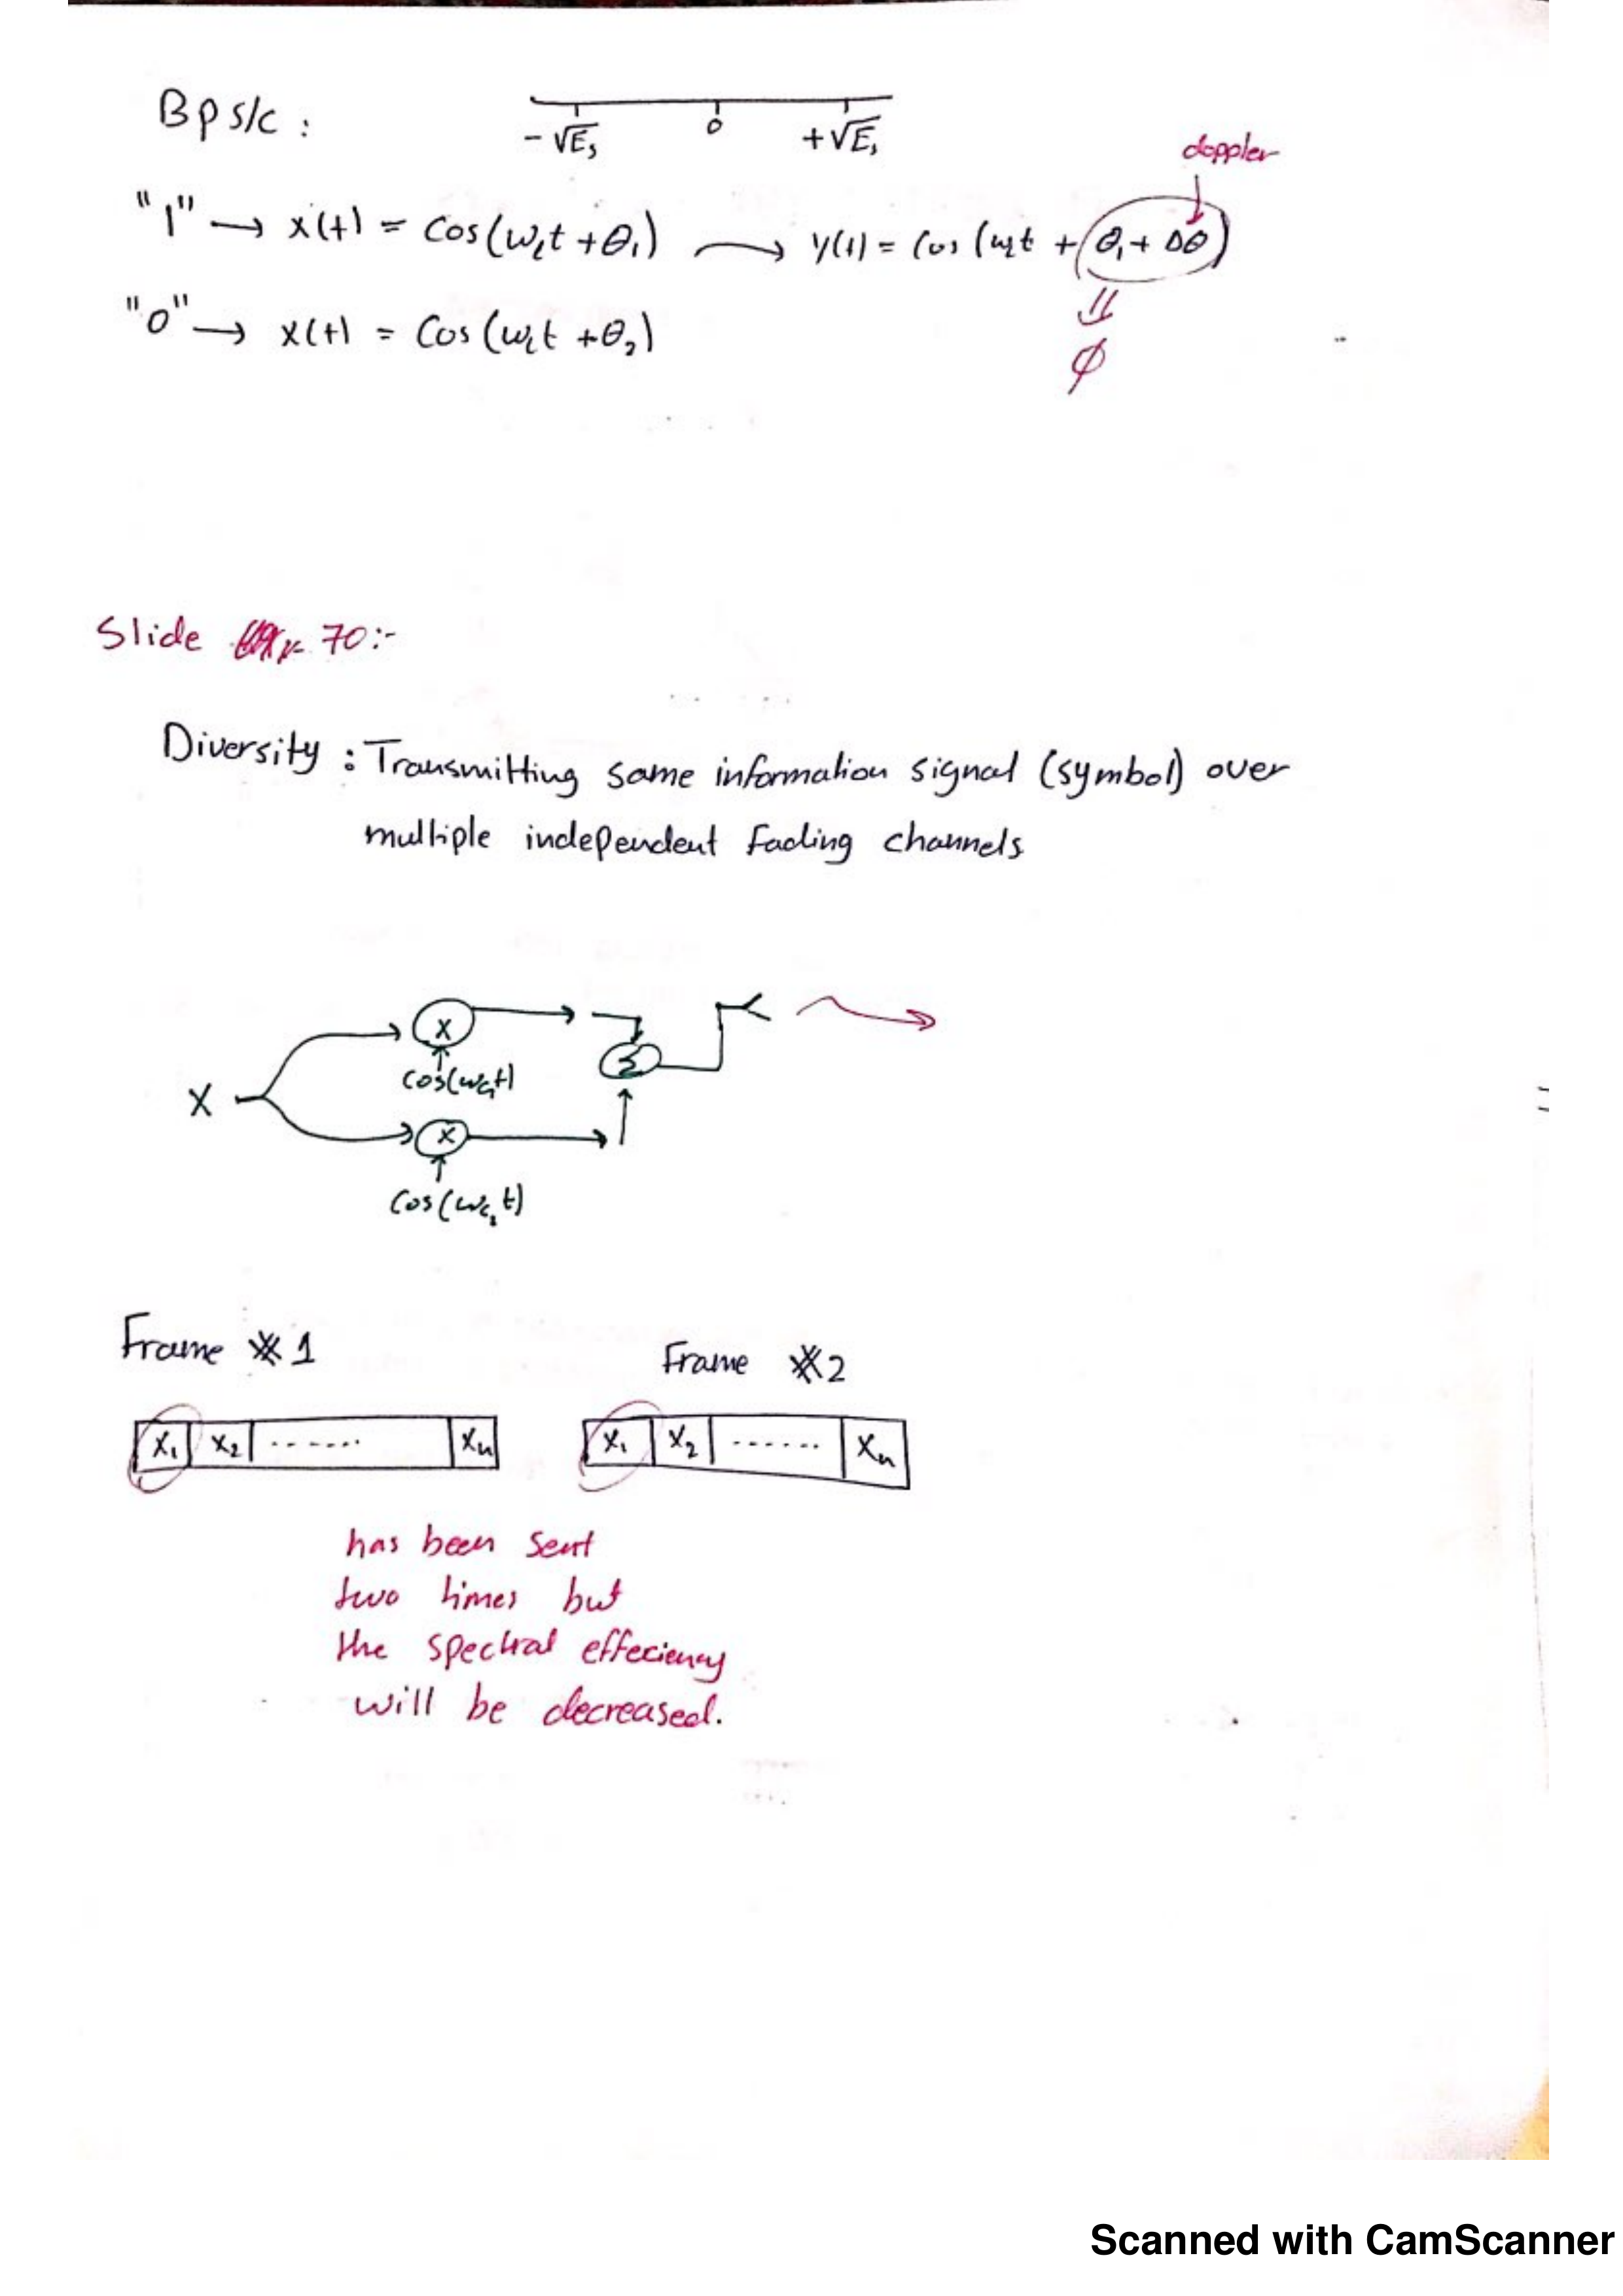 Bpsk :
-√Es 0 +√Es
doppler
"1" → x(t) = Cos(ωct + θ1) → y(t) = Cos(ωct + θ1 + Δθ)
⇓
ϕ
"0" → x(t) = Cos(ωct + θ2)
Slide 70:-
Diversity : Transmitting same information signal (symbol) over
multiple independent fading channels
X
x
cos(ωc1t)
Σ
x
Cos(ωc2t)
Frame # 1 Frame #2
x1 x2 ...... xn x1 x2 ....... xn
has been sent
two times but
the spectral effeciency
will be decreased.
Scanned with CamScanner